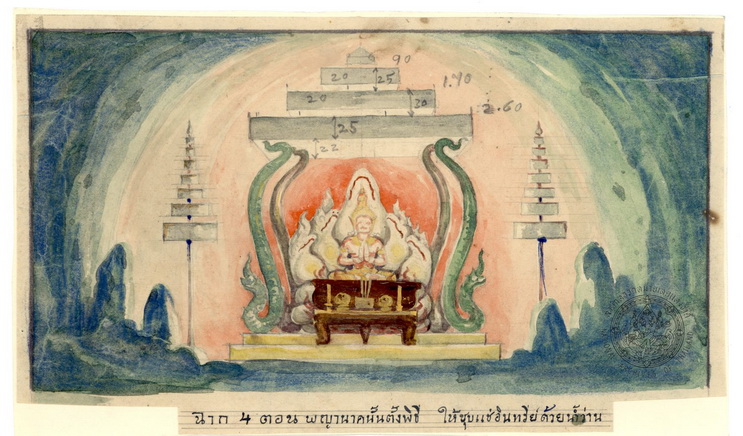 90
20 25 1.70
20 30 2.60
25
22
ฉาก 4 ตอน พญานาคนั้นตั้งพิธี ให้ชุบแช่อินทรีย์ด้วยน้ำว่าน